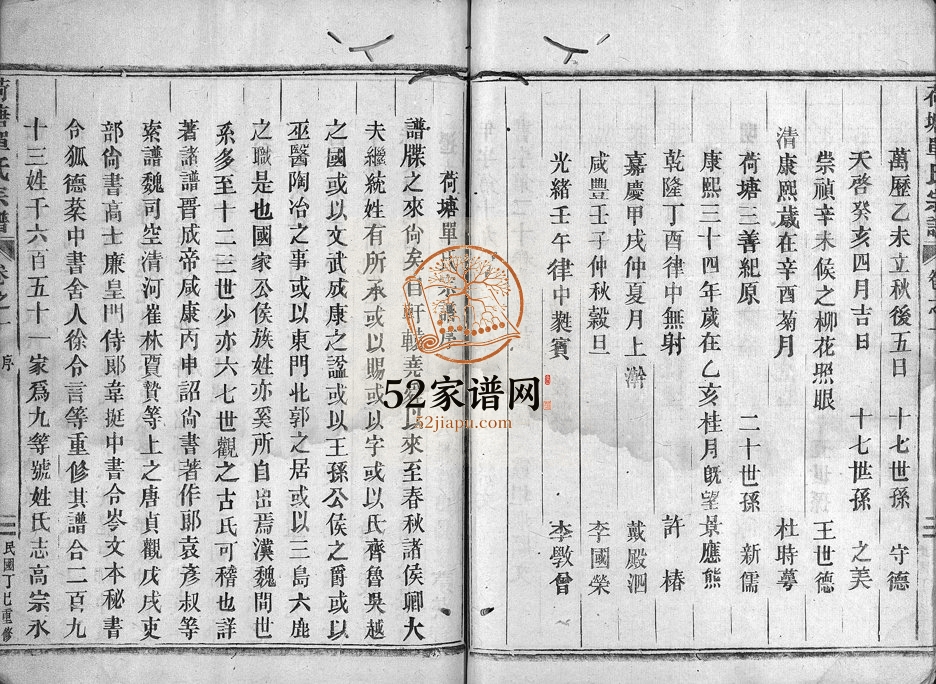 萬歷乙未立秋後五日 十七世孫 守德
天啓癸亥四月吉日 十七世孫 之美
崇禎辛未候之柳花照眼 王世德
清康熙歲在辛酉菊月 杜時萼
荷塘三善紀原 二十世孫 新儒
康熙三十四年歲在乙亥桂月既望 景應熊
乾隆丁酉律中無射 許椿
嘉慶甲戌仲夏月上澣 戴殿泗
咸豐壬子仲秋穀旦 李國榮
光緒壬午律中蕤賓 李斆曾
荷塘單氏宗譜序
譜牒之來尙矣自軒轅堯舜以來至春秋諸侯卿大
夫繼統姓有所承或以賜或以字或以氏齊魯吳越
之國或以文武成康之諡或以王孫公侯之爵或以
巫醫陶冶之事或以東門北郭之居或以三島六鹿
之職是也國家公侯族姓亦奚所自出焉漢魏間世
系多至十二三世少亦六七世觀之古氏可稽也詳
著諸譜晉成帝咸康丙申詔尙書著作郞袁彥叔等
索譜魏司空清河崔林賈贄等上之唐貞觀戊戌吏
部尙書高士廉皇門侍郞韋挺中書令岑文本秘書
令狐德棻中書舍人徐令言等重修其譜合二百九
十三姓千六百五十一家爲九等號姓氏志高宗永
荷塘單氏宗譜 卷之一 序 民國丁巳重修
52家谱网
52jiapu.com